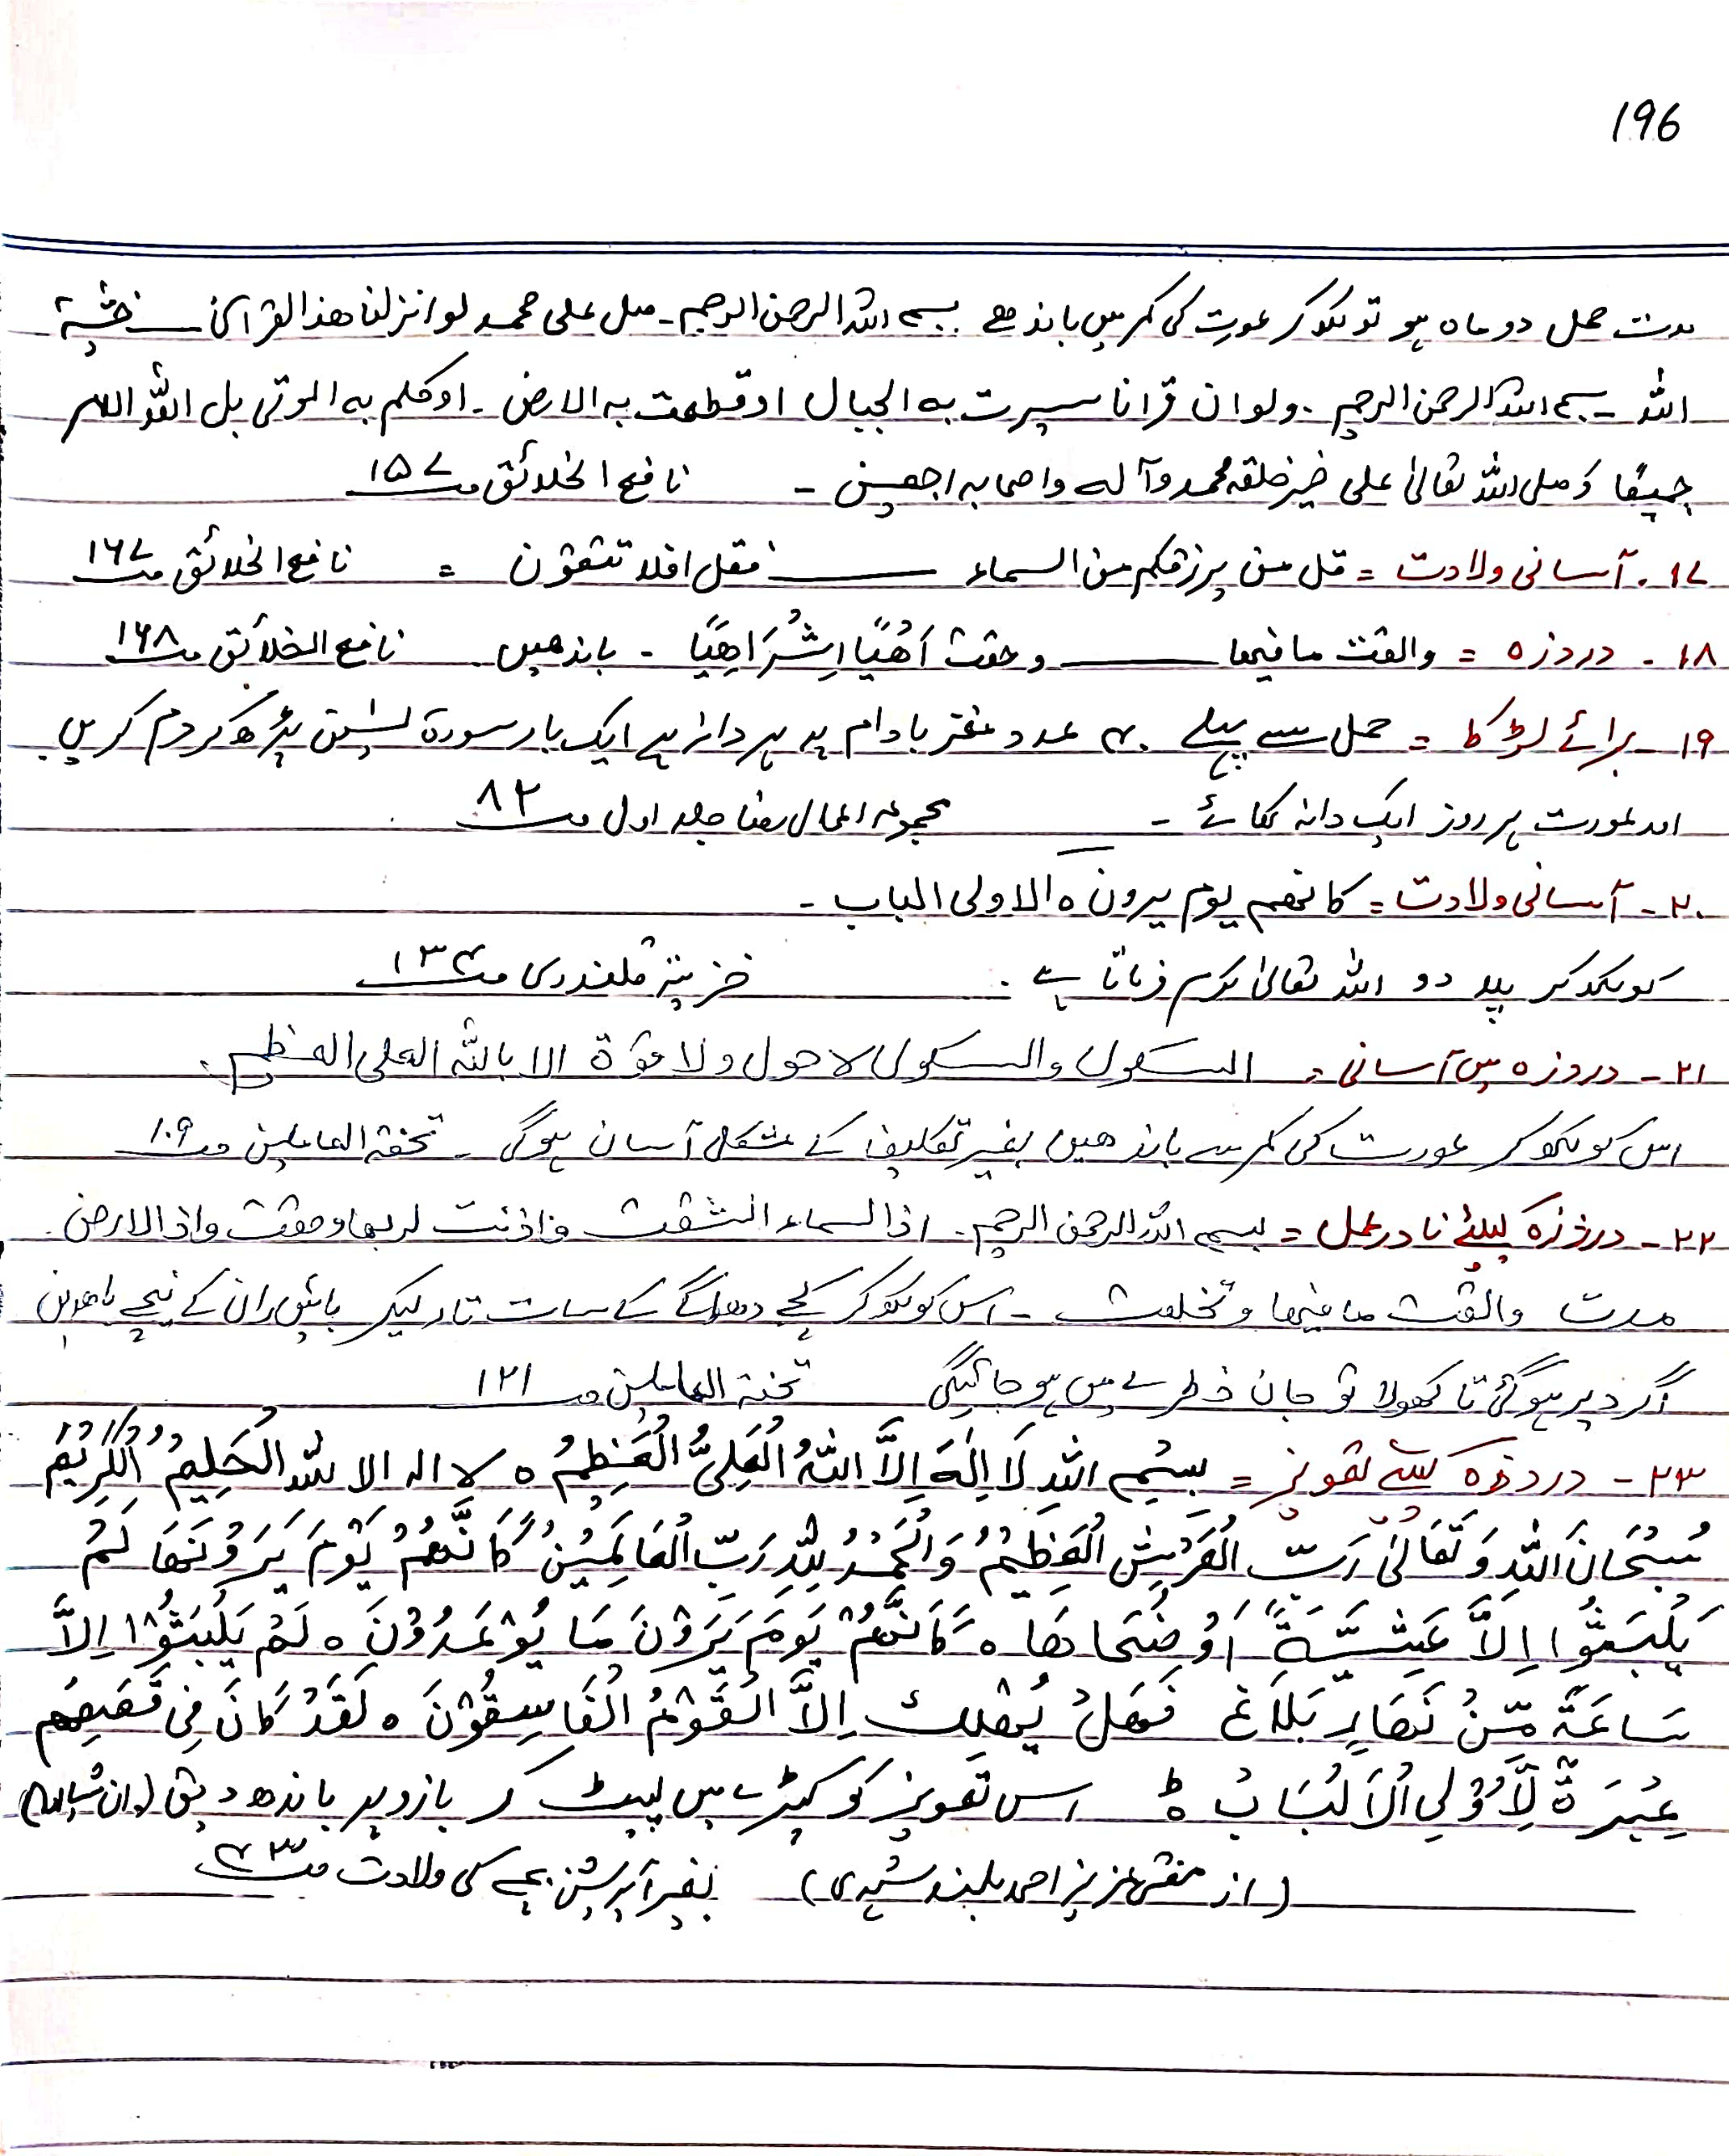 196
مدت حمل دو ماہ ہو تو لکھ کر عورت کی کمر میں باندھے بسم اللہ الرحمن الرحیم ۔ صل علی محمد لو انزلنا ھذا القرآن ـــــ خشیۃ
اللہ ۔ بسم اللہ الرحمن الرحیم ۔ ولو ان قرانا سیرت بہ الجبال او قطعت بہ الارض ۔ او کلم بہ الموتی بل اللہ الامر
جمیعًا وَ صلی اللہ تعالیٰ علی خیر خلقہ محمد وآلہ واصحابہ اجمعین ۔ نافع الخلائق صـ ۱۵۷
۱۷ ۔ آسانی ولادت = قل من یرزقکم من السماء ـــــــ فقل افلا تتقون = نافع الخلائق صـ ۱۶۷
۱۸ ۔ دردزہ = والقت ما فیھا ـــــــ وحقت اَھْیًا اِشْرَاھِیًا ۔ باندھیں نافع الخلائق صـ ۱۶۸
۱۹ ۔ برائے لڑکا = حمل سے پہلے ۴۰ عدد مغز بادام پہ ہر دانہ پے ایک بار سورۃ یٰسٓین پڑھ کر دم کریں
اور عورت ہر روز ایک دانہ کھائے ۔ مجموعہ اعمال رضا جلد اول صـ ۸۲
۲۰ ۔ آسانی ولادت = کانھم یوم یرون ہ الاولی الباب ۔
کو لکھ کر پلا دو اللہ تعالیٰ کرم فرماتا ہے ۔ خزینۃ قلندری صـ ۱۳۴
۲۱ ۔ دردزہ میں آسانی = السکول والسکول لاحول ولا قوۃ الا باللہ العلی العظیم ۔
اس کو لکھ کر عورت کی کمر سے باندھیں بغیر تکلیف کے مشکل آسان ہوگی ۔ تحفۃ العاملین صـ ۱۰۹
۲۲ ۔ دردزہ کیلئے نادر عمل = بسم اللہ الرحمن الرحیم ۔ اذا السماء انشقت واذنت لربھا وحقت واذ الارض ۔
مدت والقت ما فیھا وتخلت ۔ اس کو لکھ کر کچے دھاگے کے سات تار لیکر بائیں ران کے نیچے باندھیں
اگر دیر ہوگئی تا کھولا تو جان خطرے میں ہو جائیگی تحفۃ العاملین صـ ۱۲۱
۲۳ ۔ دردزہ کیلئے تعویز = بِسْمِ اللہِ لَا اِلٰہَ اِلَّا اللہُ الْعَلِیُّ الْعَظِیْمُ ہ لا الہ الا اللہ الْحَلِیْمُ الْکَرِیْمُ
سُبْحَانَ اللہِ وَتَعَالیٰ رَبِّ الْعَرْشِ الْعَظِیْمِ وَالْحَمْدُ لِلّٰہِ رَبِّ الْعَالَمِیْنَ کَاَنَّھُمْ یَوْمَ یَرَوْنَھَا لَمْ
یَلْبَثُوْا اِلَّا عَشِیَّۃً اَوْ ضُحَاھَا ہ کَاَنَّھُمْ یَوْمَ یَرَوْنَ مَا یُوْعَدُوْنَ ہ لَمْ یَلْبَثُوْا اِلَّا
سَاعَۃً مِّنْ نَھَارٍ بَلَاغ فَھَلْ یُھْلَکُ اِلَّا الْقَوْمُ الْفَاسِقُوْنَ ہ لَقَدْ کَانَ فِیْ قَصَصِھِمْ
عِبْرَۃٌ لِّاُولِی الْاَلْبَابِ ہ اس تعویز کو کپڑے میں لپیٹ کر بازو پر باندھ دیں (ان شاءاللہ)
(از مفتی عزیز احمد بلند شہری) بغیر آپریشن بچے کی ولادت صـ ۴۳